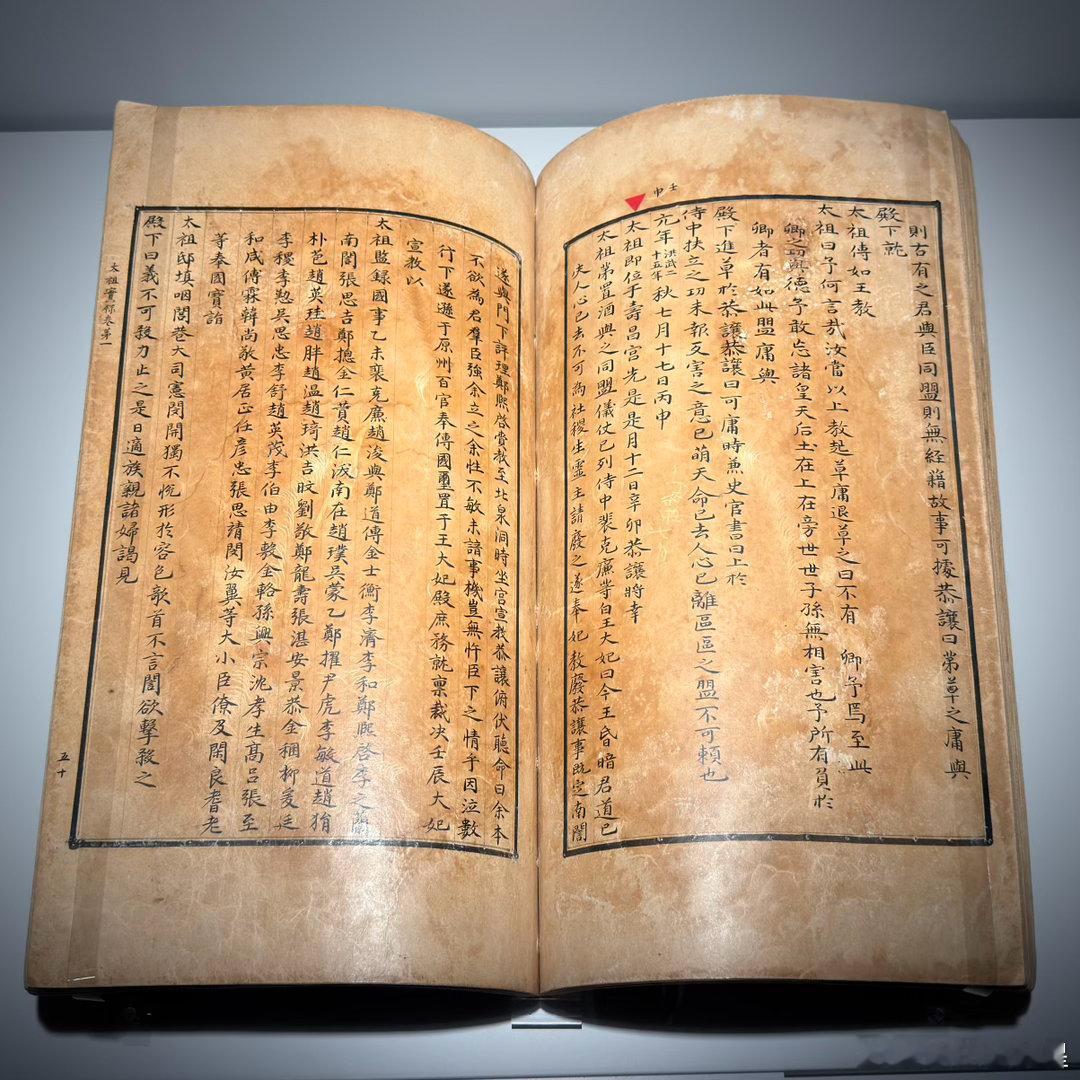 則古有之君與臣同盟則無經籍故事可據恭讓曰第草之庸與
殿下就
太祖傳如王敎
太祖曰予何言哉汝當以上敎起草庸退草之曰不有 卿予焉至此
卿之功與德予敢忘諸皇天后土在上在旁世世子孫無相害也予所有負於
卿者有如此盟庸與
殿下進草於恭讓恭讓曰可庸時兼史官書曰上於
侍中扶立之功未報反害之意已萌天命已去人心已離區區之盟不可賴也
壬申
元年洪武二十五年秋七月十七日丙申
太祖即位于壽昌宮先是是月十二日辛卯恭讓將幸
太祖第置酒與之同盟儀仗已列侍中裴克廉等白王大妃曰今王昏暗君道已
失人心已去不可爲社稷生靈主請廢之遂奉妃敎廢恭讓事旣定南誾
遂與門下評理鄭熙啓賫敎至北泉洞時坐宮宣敎恭讓俯伏聽命曰余本
不欲爲君羣臣強余立之余性不敏未諳事機豈無忤臣下之情乎因泣數
行下遂遜于原州百官奉傳國璽置于王大妃殿庶務就稟裁決壬辰大妃
宣敎以
太祖監錄國事乙未裴克廉趙浚與鄭道傳金士衡李濟李和鄭熙啓李之蘭
南誾張思吉鄭摠金仁賛趙仁沃南在趙璞吳蒙乙鄭擢尹虎李敏道趙狷
朴苞趙英珪趙胖趙溫趙琦洪吉旼劉敬鄭龍壽張湛安景恭金稛柳爰廷
李稷李懃吳思忠李舒趙英茂李伯由李敷金輅孫興宗沈孝生高呂張至
和咸傅霖韓尙敬黃居正任彦忠張思靖閔汝翼等大小臣僚及閑良耆老
等奉國寶詣
太祖邸塡咽閭巷大司憲閔開獨不悅形於容色欹首不言誾欲擊殺之
殿下曰義不可殺力止之是日適族親諸婦謁見
太祖實錄卷第一
五十